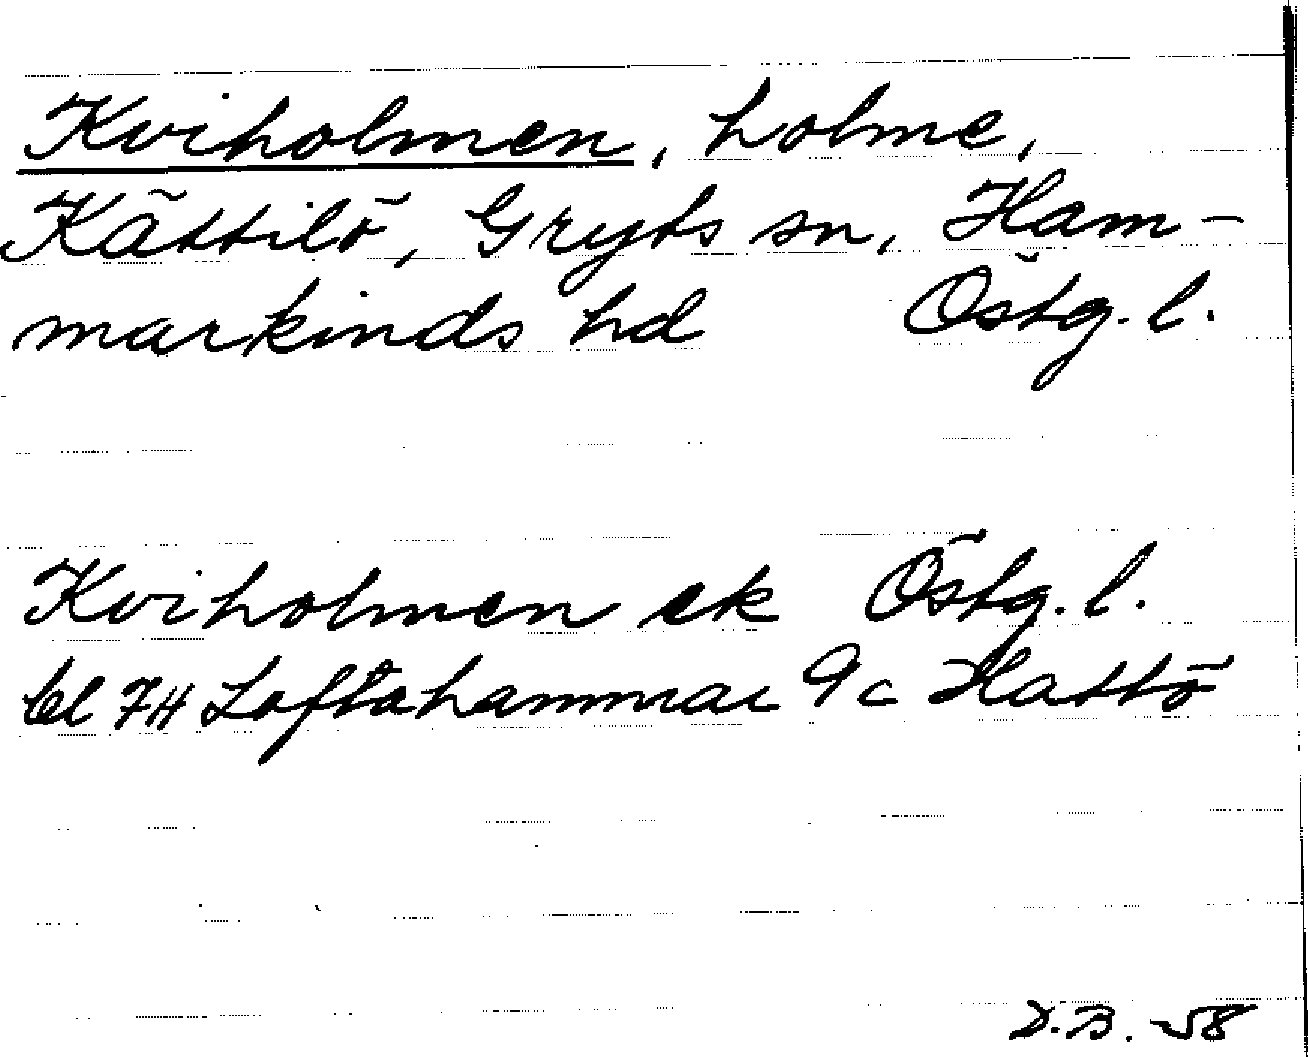 Kviholmen, holme,
Kättilö, Gryts sn, Ham-
markinds hd Östg. l.
Kviholmen ek Östg. l.
bl 7H Loftahammar 9c Hattö
D.B. -58